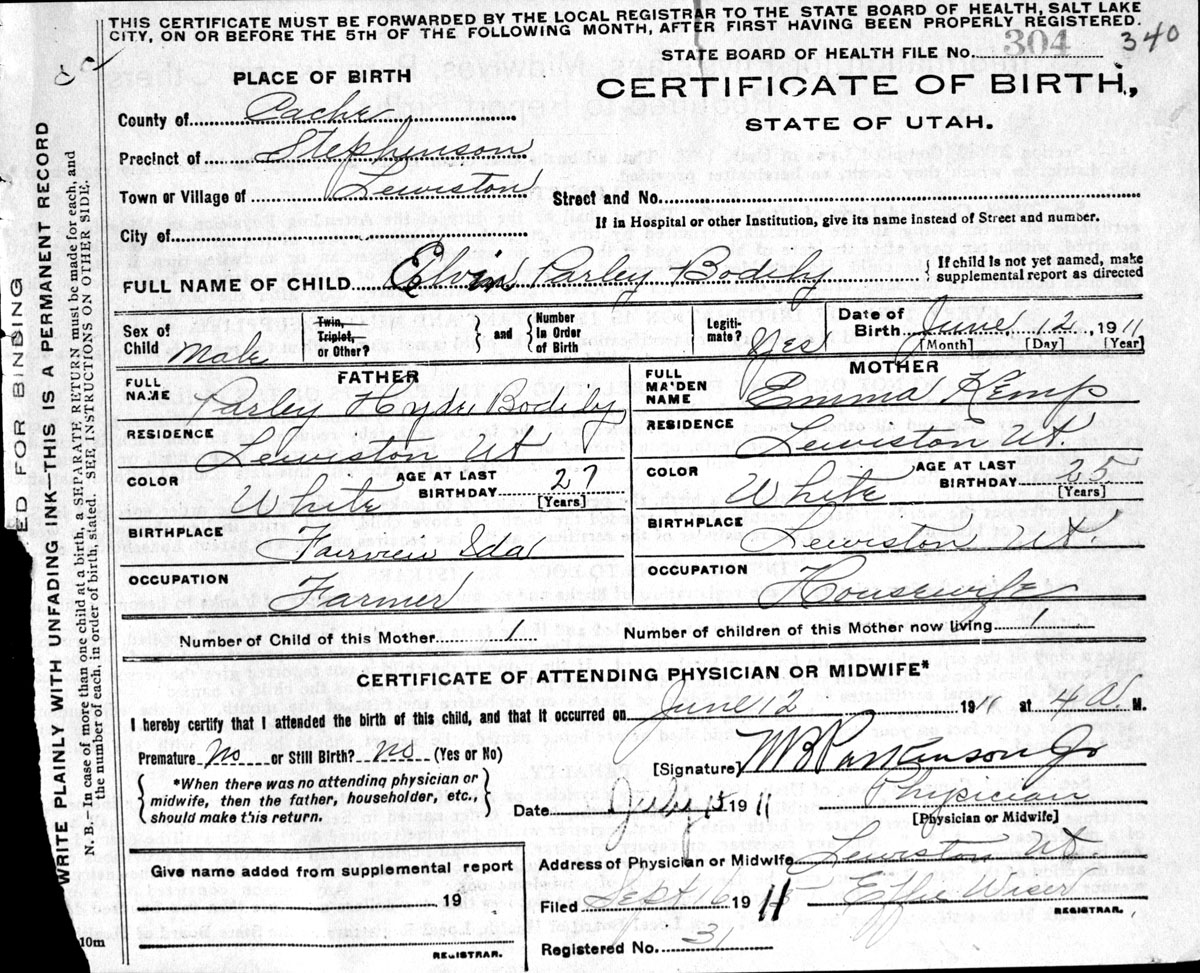 THIS CERTIFICATE MUST BE FORWARDED BY THE LOCAL REGISTRAR TO THE STATE BOARD OF HEALTH, SALT LAKE
CITY, ON OR BEFORE THE 5TH OF THE FOLLOWING MONTH, AFTER FIRST HAVING BEEN PROPERLY REGISTERED.
STATE BOARD OF HEALTH FILE No. 304 340
PLACE OF BIRTH
CERTIFICATE OF BIRTH,
STATE OF UTAH.
County of Cache
Precinct of Stephenson
Town or Village of Lewiston Street and No.
If in Hospital or other Institution, give its name instead of Street and number.
City of
FULL NAME OF CHILD Elvin Parley Bodily { If child is not yet named, make
supplemental report as directed
Sex of Child Male Twin, Triplet, or Other? } and { Number in Order of Birth Legiti-mate? Yes Date of Birth June 12, 1911
[Month] [Day] [Year]
FATHER MOTHER
FULL NAME Parley Hyde Bodily FULL MAIDEN NAME Emma Kemp
RESIDENCE Lewiston Ut RESIDENCE Lewiston Ut.
COLOR White AGE AT LAST BIRTHDAY 27 [Years] COLOR White AGE AT LAST BIRTHDAY 25 [Years]
BIRTHPLACE Fairview Ida BIRTHPLACE Lewiston Ut
OCCUPATION Farmer OCCUPATION Housewife
Number of Child of this Mother 1 Number of children of this Mother now living 1
CERTIFICATE OF ATTENDING PHYSICIAN OR MIDWIFE*
I hereby certify that I attended the birth of this child, and that it occurred on June 12 1911 at 4 A. M.
Premature No or Still Birth? No (Yes or No)
[Signature] W B Parkinson Jr
{ *When there was no attending physician or
midwife, then the father, householder, etc.,
should make this return. }
Date July 5 1911 Physician
[Physician or Midwife]
Address of Physician or Midwife Lewiston Ut
Give name added from supplemental report
19
REGISTRAR.
Filed Sept 16 1911 Effie Wiser
REGISTRAR.
Registered No. 31
10m
ED FOR BINDING
WRITE PLAINLY WITH UNFADING INK-THIS IS A PERMANENT RECORD
N. B.-In case of more than one child at a birth, a SEPARATE RETURN must be made for each, and
the number of each, in order of birth, stated. (SEE INSTRUCTIONS ON OTHER SIDE.